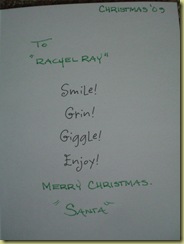 CHRISTMAS '09
TO
"RACHEL RAY"
Smile!
Grin!
Giggle!
Enjoy!
MERRY CHRISTMAS.
"SANTA"